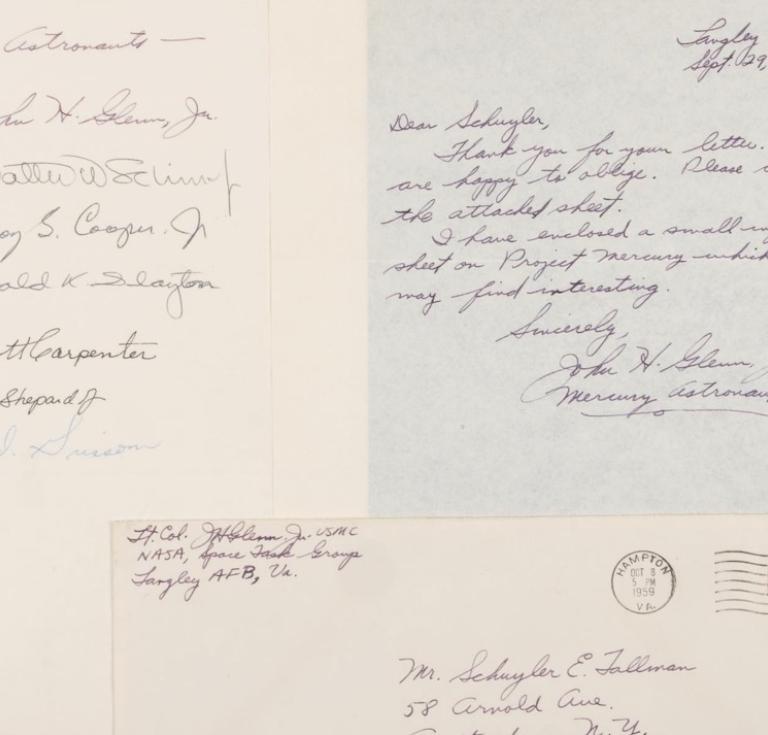 Astronauts —
John H. Glenn, Jr.
Walter M Schirra Jr
S. Cooper. Jr
ald K Slayton
tt Carpenter
Shepard Jr
I. Grissom
Langley
Sept. 29,
Dear Schuyler,
Thank you for your letter.
are happy to oblige. Please
the attached sheet.
I have enclosed a small
sheet on Project Mercury which
may find interesting.
Sincerely,
John H. Glenn,
Mercury Astronau
Lt. Col. JH Glenn, Jr. USMC
NASA, Space Task Group
Langley AFB, Va.
HAMPTON
OCT 3
5 PM
1959
VA.
Mr. Schuyler E. Tallman
58 Arnold Ave.
N. Y.